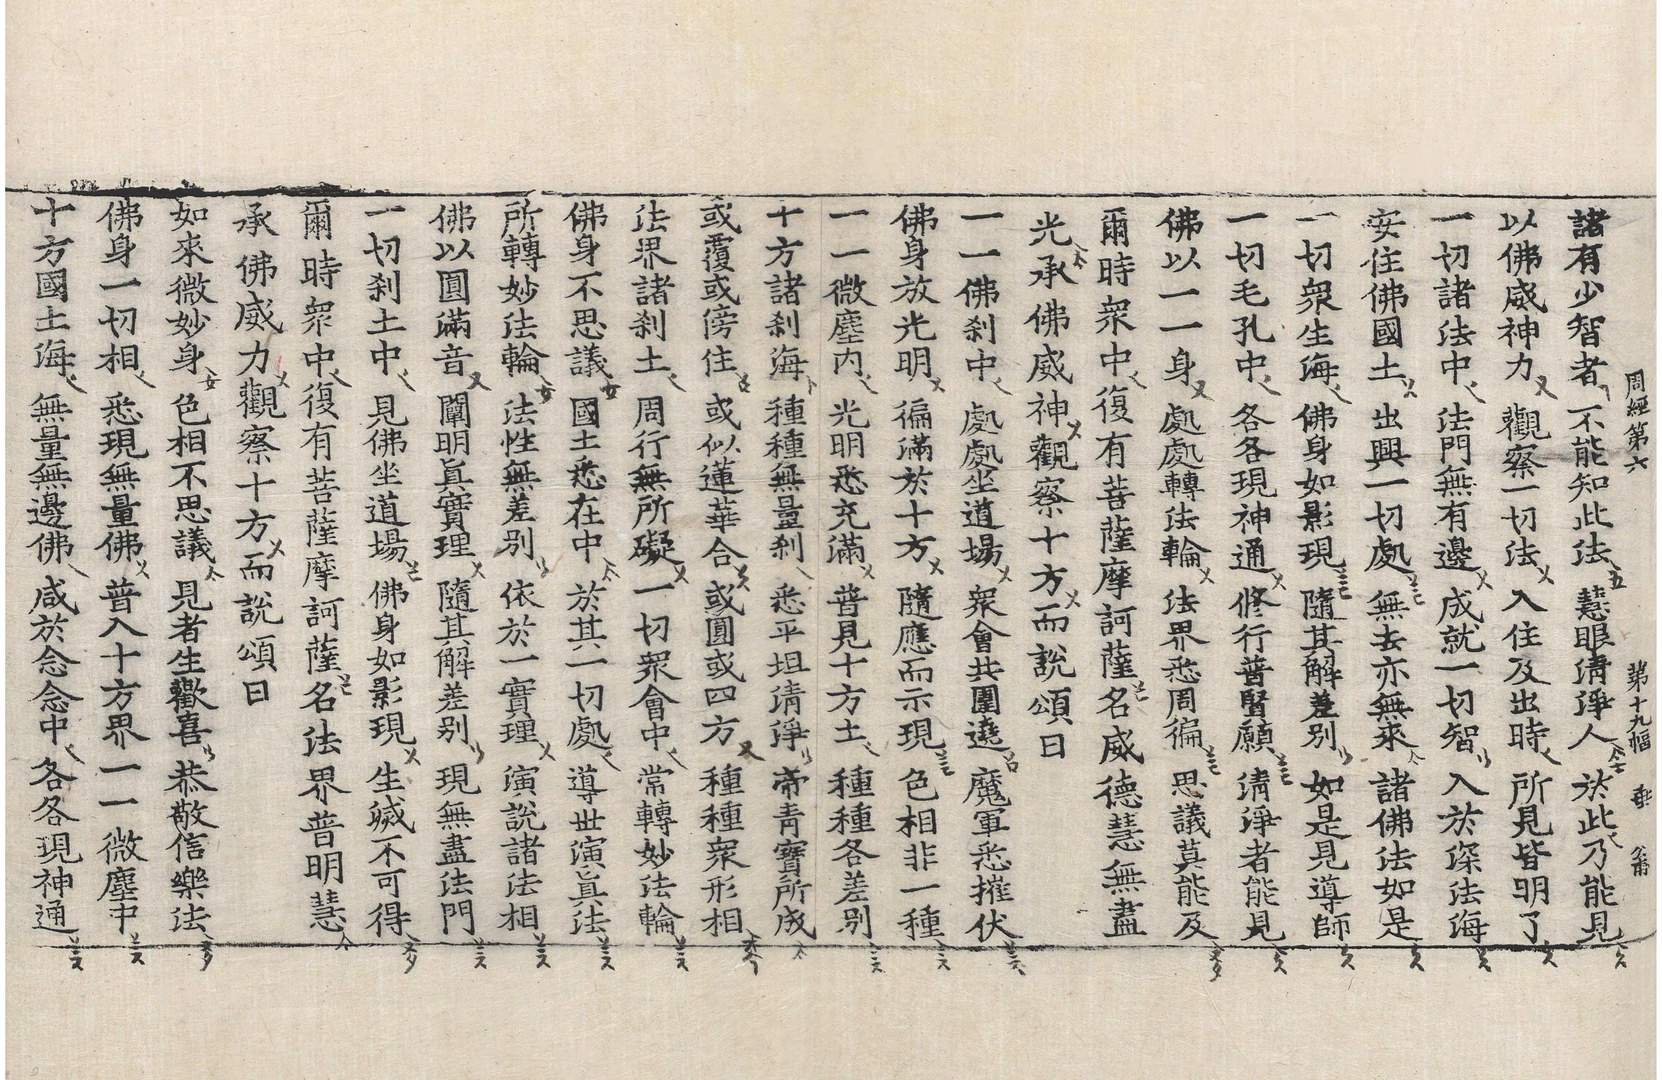 諸有少智者不能知此法慧眼淸淨人於此乃能見
周經第六 第十九幅
以佛威神力觀察一切法入住及出時所見皆明了
一切諸法中法門無有邊成就一切智入於深法海
安住佛國土出興一切處無去亦無來諸佛法如是
一切衆生海佛身如影現隨其解差別如是見導師
一切毛孔中各各現神通修行普賢願淸淨者能見
佛以一一身處處轉法輪法界悉周徧思議莫能及
爾時衆中復有菩薩摩訶薩名威德慧無盡
光承佛威神觀察十方而說頌曰
一一佛刹中處處坐道場衆會共圍遶魔軍悉摧伏
佛身放光明徧滿於十方隨應而示現色相非一種
一一微塵內光明悉充滿普見十方土種種各差別
十方諸刹海種種無量刹悉平坦淸淨帝靑寶所成
或覆或傍住或似蓮華合或圓或四方種種衆形相
法界諸刹土周行無所礙一切衆會中常轉妙法輪
佛身不思議國土悉在中於其一切處導世演眞法
所轉妙法輪法性無差別依於一實理演說諸法相
佛以圓滿音闡明眞實理隨其解差別現無盡法門
一切刹土中見佛坐道場佛身如影現生滅不可得
爾時衆中復有菩薩摩訶薩名法界普明慧
承佛威力觀察十方而說頌曰
如來微妙身色相不思議見者生歡喜恭敬信樂法
佛身一切相悉現無量佛普入十方界一一微塵中
十方國土海無量無邊佛咸於念念中各各現神通